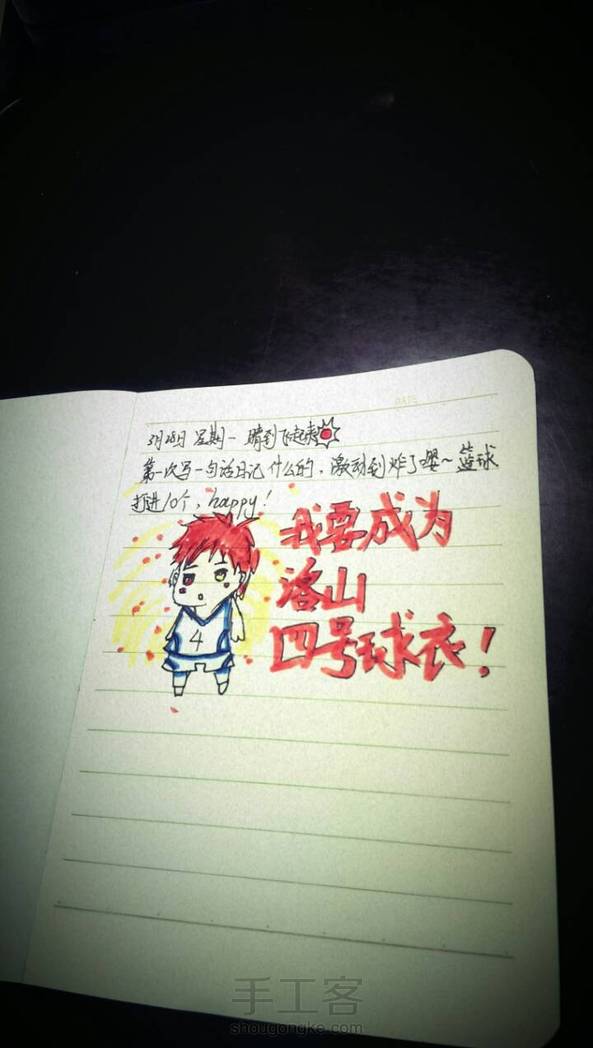 DATE
3月28日 星期一 晴到飞起来
第一次写一句话日记什么的,激动到炸了嘿~篮球
打进10个,happy!
我要成为
洛山
四号球衣!
4
手工客
shougongke.com